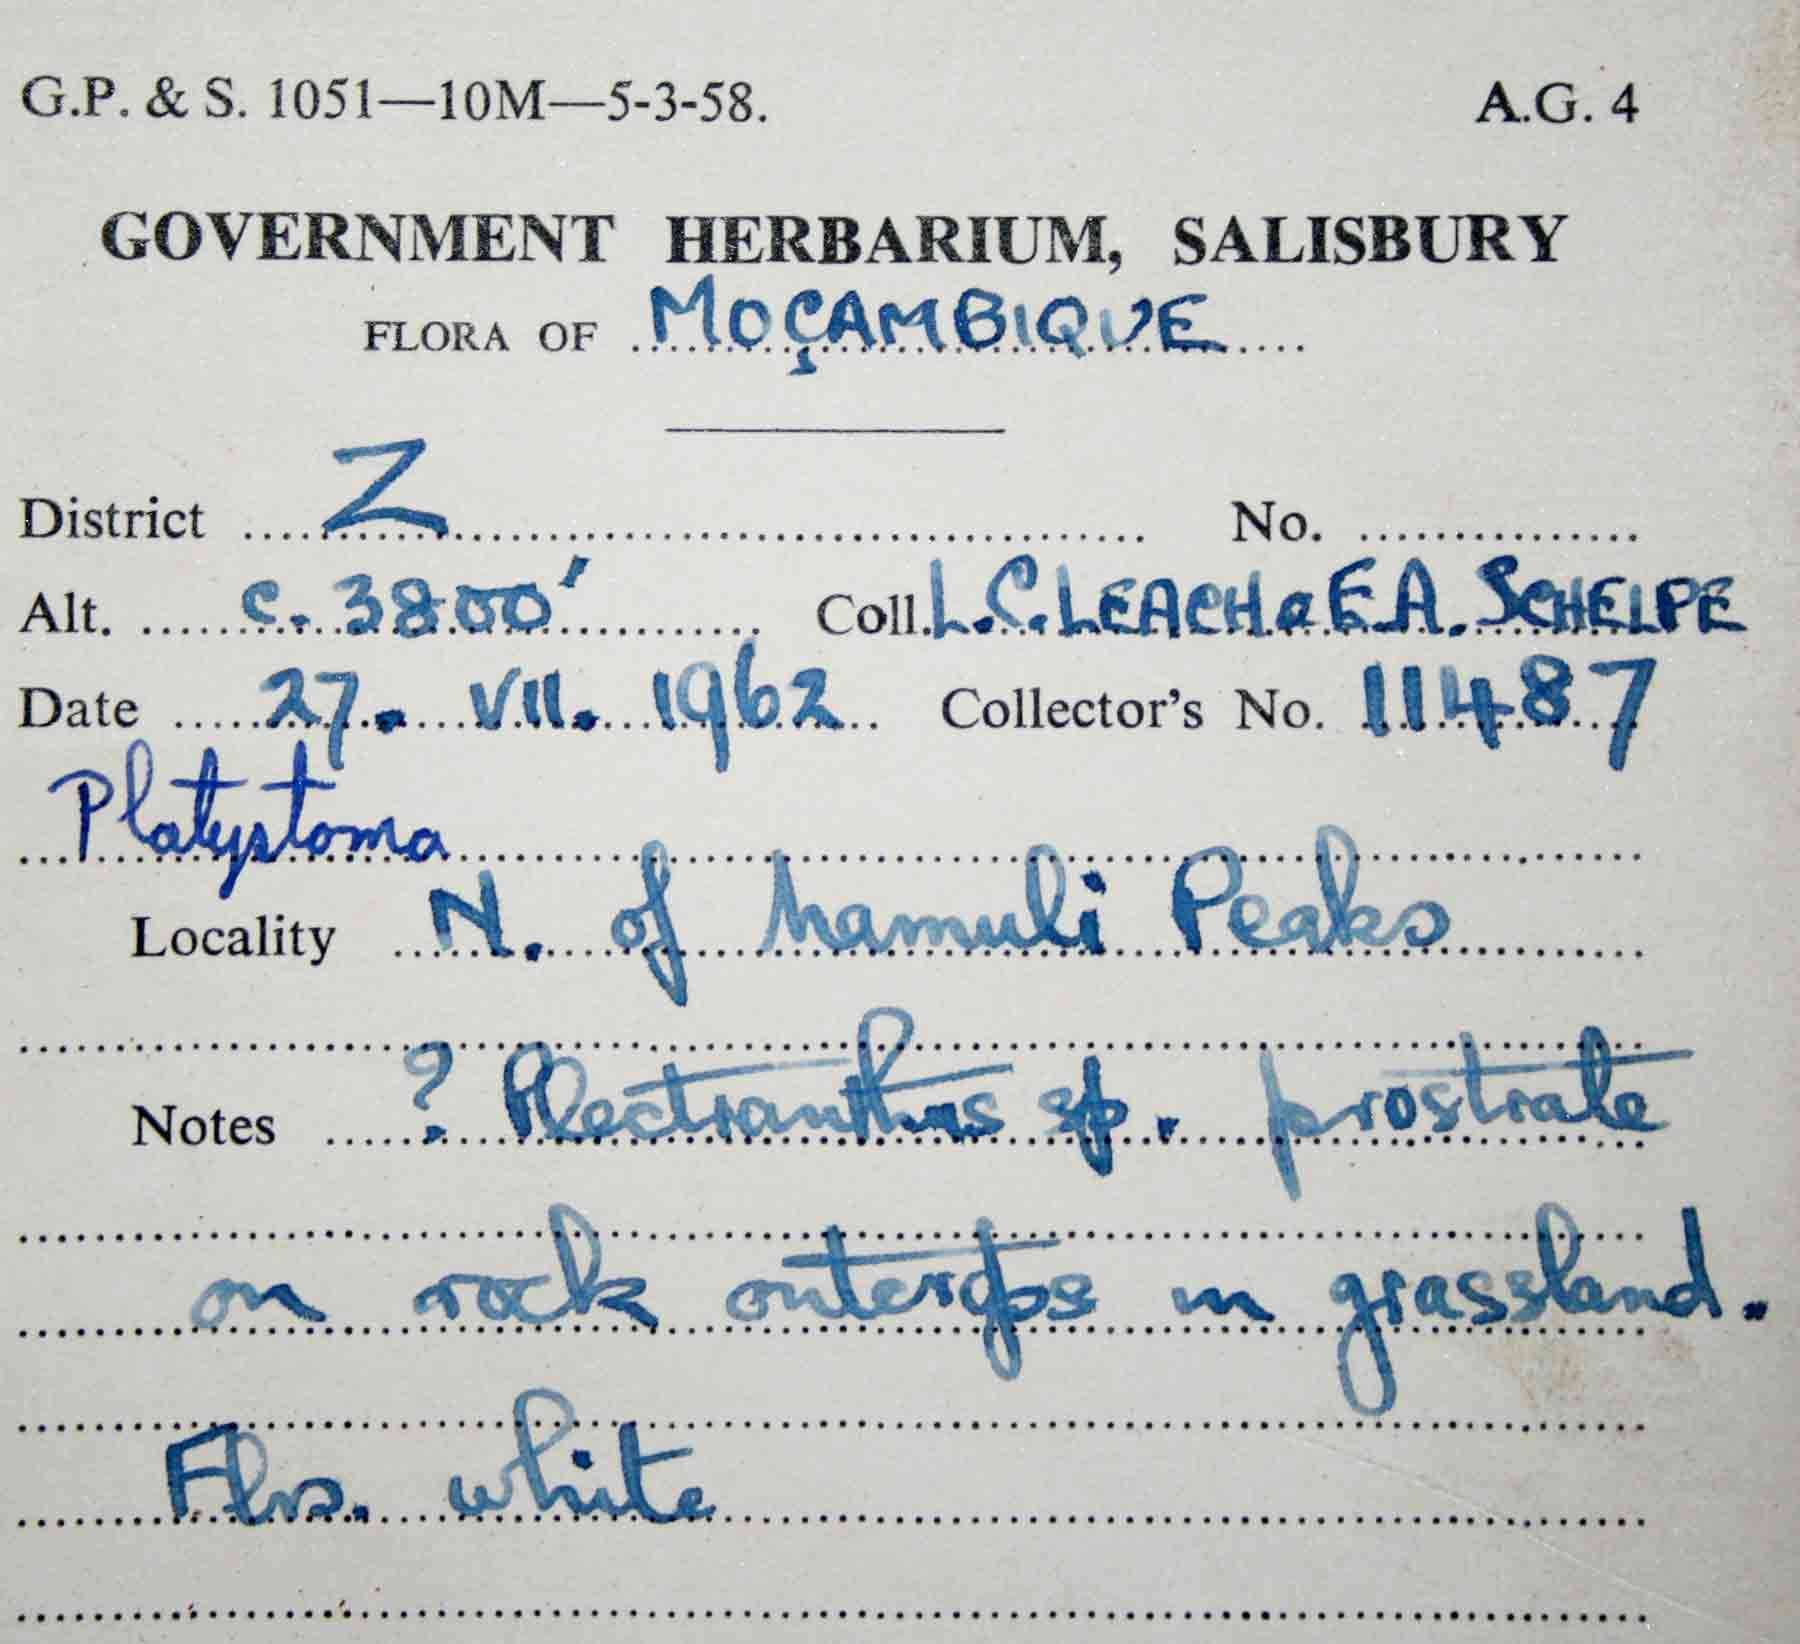 G.P. & S. 1051—10M—5-3-58. A.G. 4
GOVERNMENT HERBARIUM, SALISBURY
FLORA OF MOÇAMBIQUE
District Z No.
Alt. c. 3800' Coll. L.C. LEACH & E.A. SCHELPE
Date 27. VII. 1962 Collector's No. 11487
Platystoma
Locality N. of Namuli Peaks
Notes ? Plectranthus sp. prostrate
on rock outcrops in grassland.
Flrs. white